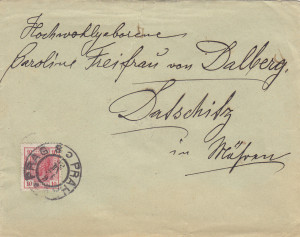 Hochwohlgeborene
Caroline Freifrau von Dalberg.
Datschitz
in Mähren
PRAG PRAHA
10